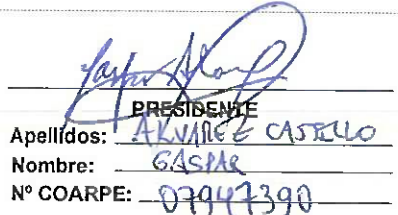 PRESIDENTE
Apellidos: ALVAREZ CASTELLO
Nombre: GASPAR
Nº COARPE: 07947390